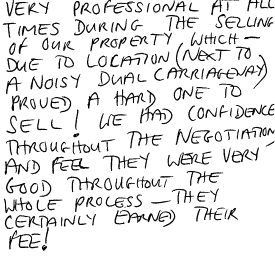 VERY PROFESSIONAL AT ALL
TIMES DURING THE SELLING
OF OUR PROPERTY WHICH —
DUE TO LOCATION (NEXT TO
A NOISY DUAL CARRIAGEWAY)
PROVED A HARD ONE TO
SELL! WE HAD CONFIDENCE
THROUGHOUT THE NEGOTIATION
AND FEEL THEY WERE VERY
GOOD THROUGHOUT THE
WHOLE PROCESS — THEY
CERTAINLY EARNED THEIR
FEE!